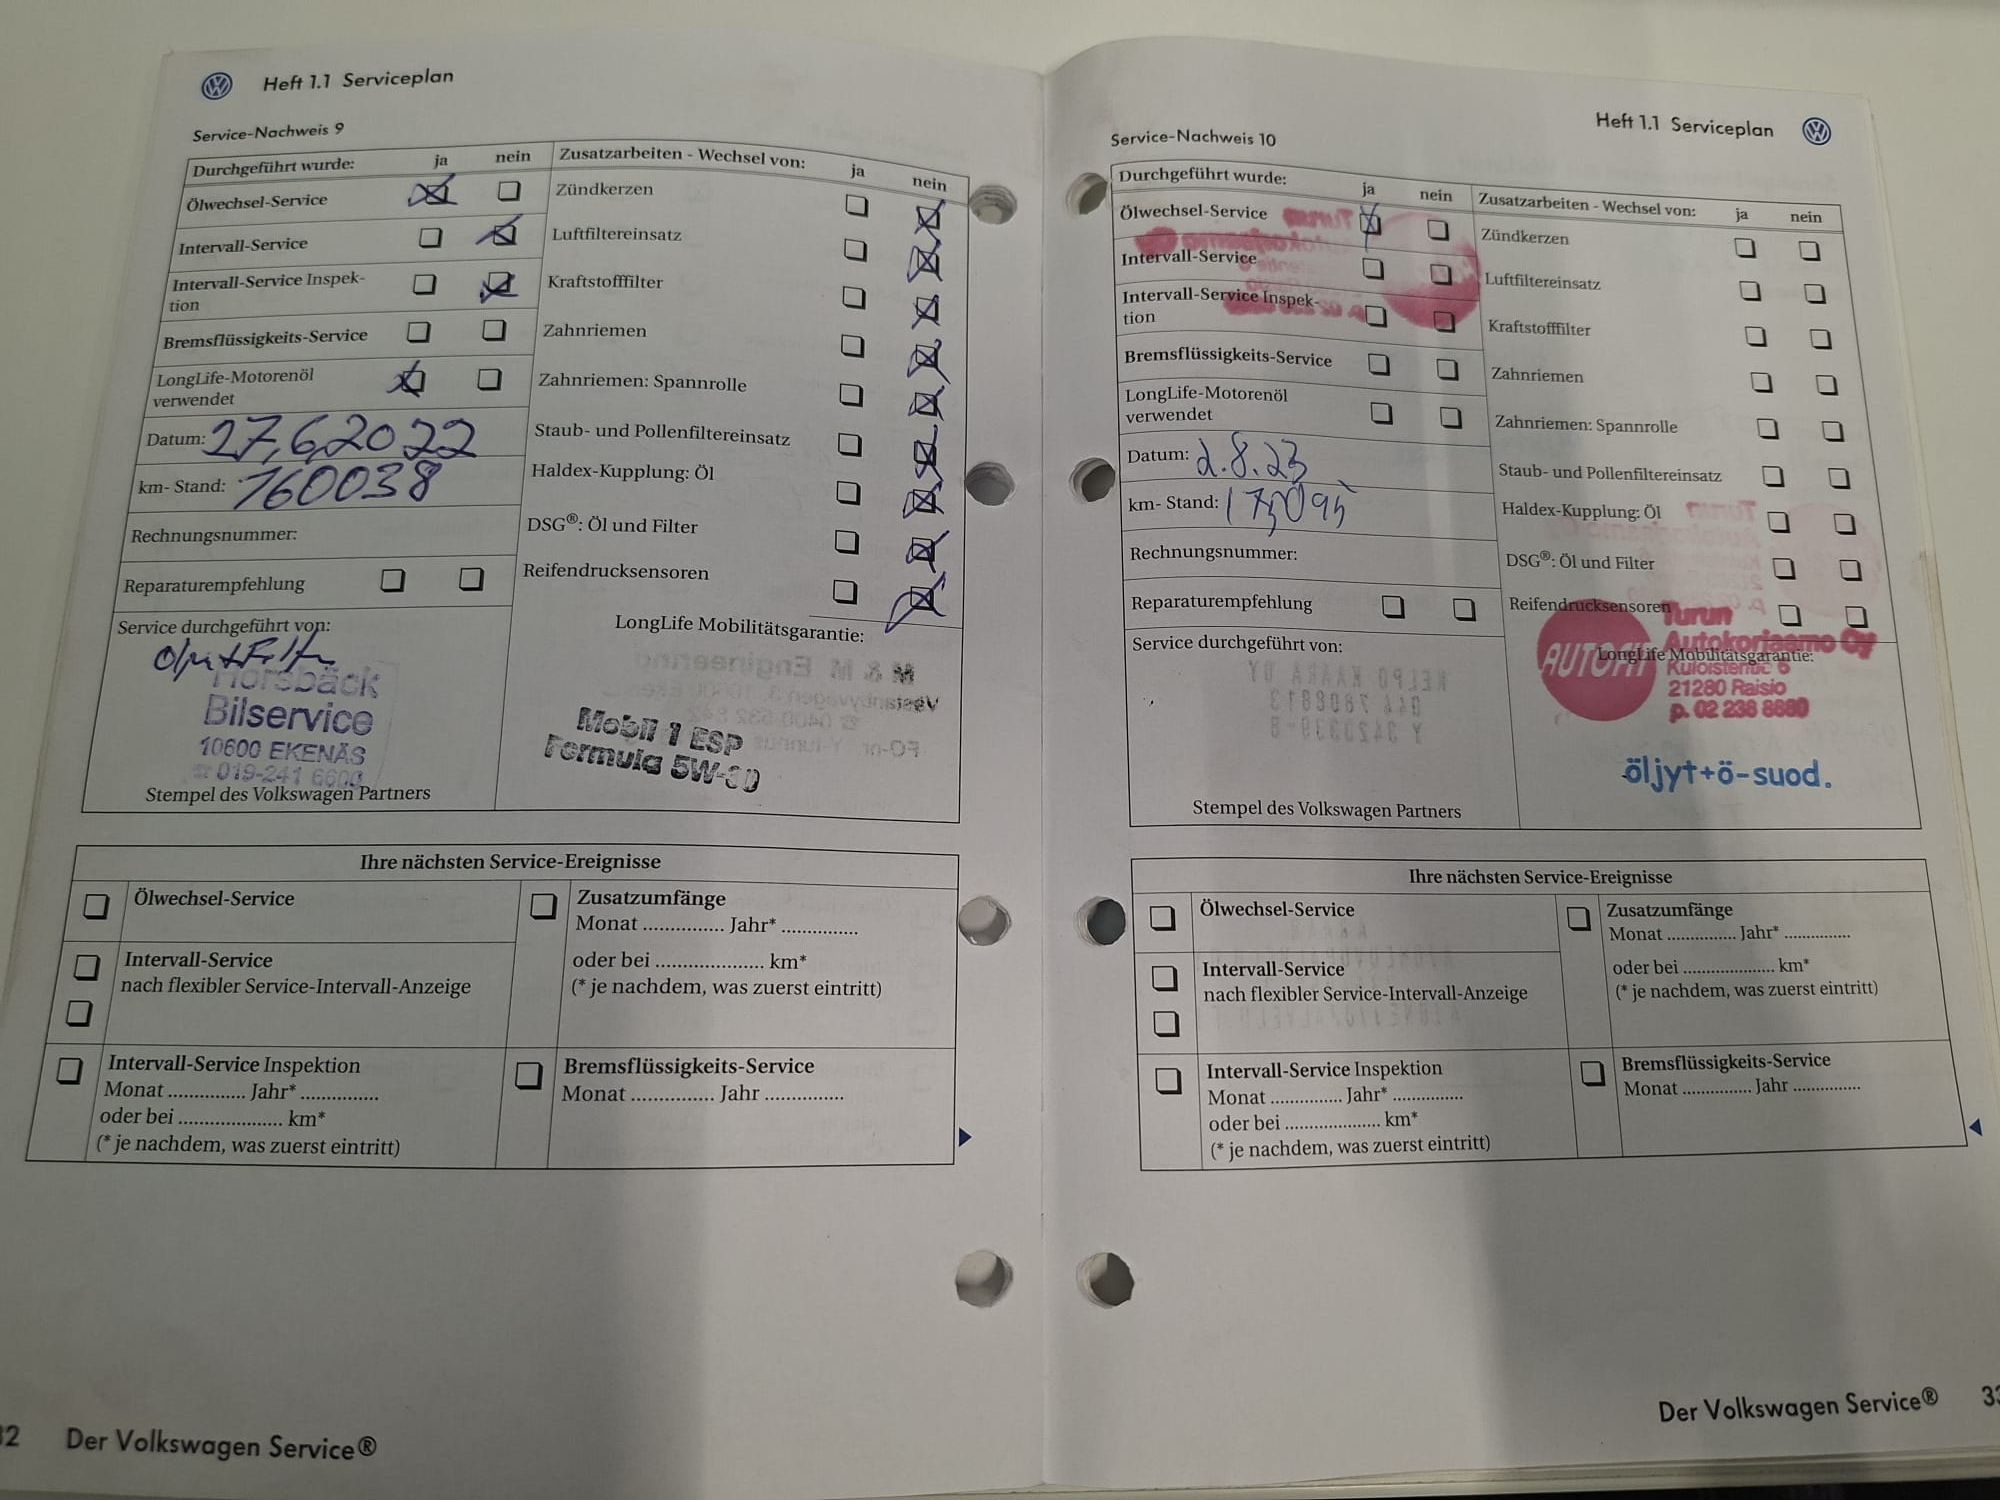 Heft 1.1 Serviceplan
Service-Nachweis 9
Durchgeführt wurde: ja nein
Ölwechsel-Service
Intervall-Service
Intervall-Service Inspek-
tion
Bremsflüssigkeits-Service
LongLife-Motorenöl
verwendet
Datum: 27,6,2022
km- Stand: 160038
Rechnungsnummer:
Reparaturempfehlung
Service durchgeführt von:
Horsbäck
Bilservice
10600 EKENÄS
019-241 6600
Stempel des Volkswagen Partners
Zusatzarbeiten - Wechsel von: ja nein
Zündkerzen
Luftfiltereinsatz
Kraftstofffilter
Zahnriemen
Zahnriemen: Spannrolle
Staub- und Pollenfiltereinsatz
Haldex-Kupplung: Öl
DSG®: Öl und Filter
Reifendrucksensoren
LongLife Mobilitätsgarantie:
Mobil 1 ESP
Formula 5W-30
Ihre nächsten Service-Ereignisse
Ölwechsel-Service
Intervall-Service
nach flexibler Service-Intervall-Anzeige
Intervall-Service Inspektion
Monat .............. Jahr* ..............
oder bei .................... km*
(* je nachdem, was zuerst eintritt)
Zusatzumfänge
Monat .............. Jahr* ..............
oder bei .................... km*
(* je nachdem, was zuerst eintritt)
Bremsflüssigkeits-Service
Monat .............. Jahr ..............
32 Der Volkswagen Service®
Heft 1.1 Serviceplan
Service-Nachweis 10
Durchgeführt wurde: ja nein
Ölwechsel-Service
Intervall-Service
Intervall-Service Inspek-
tion
Bremsflüssigkeits-Service
LongLife-Motorenöl
verwendet
Datum: 2.8.23
km- Stand:
Rechnungsnummer:
Reparaturempfehlung
Service durchgeführt von:
Stempel des Volkswagen Partners
Zusatzarbeiten - Wechsel von: ja nein
Zündkerzen
Luftfiltereinsatz
Kraftstofffilter
Zahnriemen
Zahnriemen: Spannrolle
Staub- und Pollenfiltereinsatz
Haldex-Kupplung: Öl
DSG®: Öl und Filter
Reifendrucksensoren
LongLife Mobilitätsgarantie:
Turun
Autokorjaamo Oy
Kuloistentie 6
21280 Raisio
p. 02 238 8680
öljyt+ö-suod.
Ihre nächsten Service-Ereignisse
Ölwechsel-Service
Intervall-Service
nach flexibler Service-Intervall-Anzeige
Intervall-Service Inspektion
Monat .............. Jahr* ..............
oder bei .................... km*
(* je nachdem, was zuerst eintritt)
Zusatzumfänge
Monat .............. Jahr* ..............
oder bei .................... km*
(* je nachdem, was zuerst eintritt)
Bremsflüssigkeits-Service
Monat .............. Jahr ..............
Der Volkswagen Service® 33